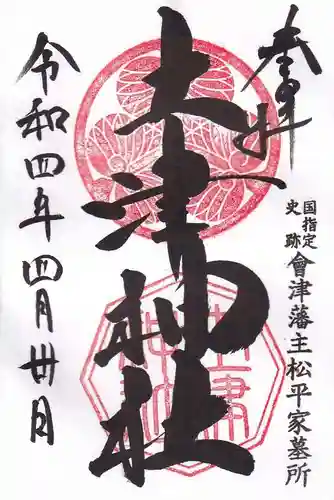 奉拝
国指定
史跡
會津藩主松平家墓所
土津神社
令和四年四月卅日